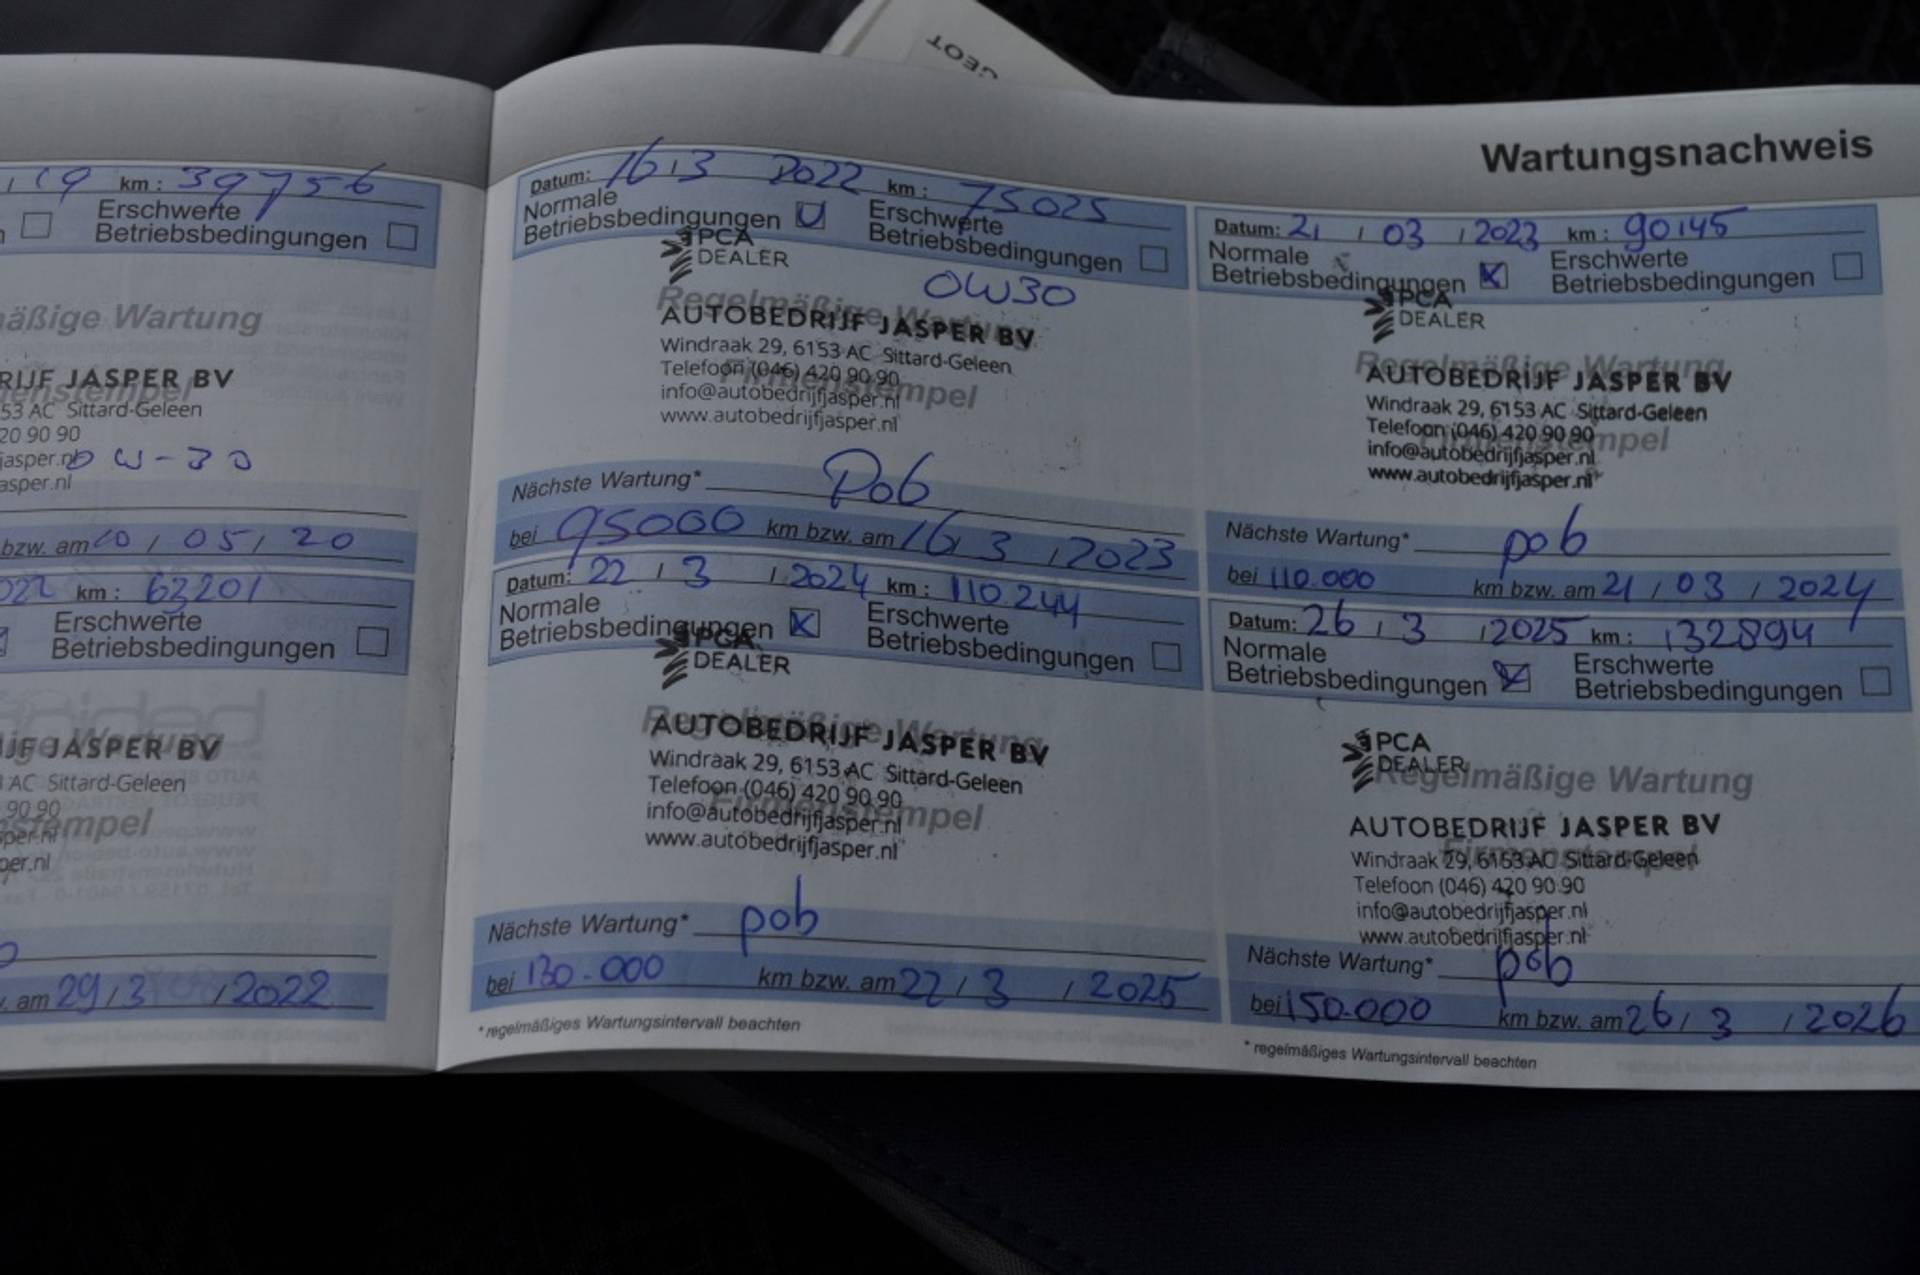 GEOT
Wartungsnachweis
19 km: 39756
Erschwerte
Betriebsbedingungen
äßige Wartung
RIJF JASPER BV
stempel
53 AC Sittard-Geleen
20 90 90
jasper.nl 0W-30
asper.nl
bzw. am 20/05/20
022 km: 63201
Erschwerte
Betriebsbedingungen
ige Wartung
IJF JASPER BV
AC Sittard-Geleen
90 90
stempel
per.nl
per.nl
am 29/3/2022
Datum: 16/3 2022 km: 75025
Normale
Betriebsbedingungen
Erschwerte
Betriebsbedingungen
PCA
DEALER
0W30
Regelmäßige Wartung
AUTOBEDRIJF JASPER BV
Windraak 29, 6153 AC Sittard-Geleen
Telefoon (046) 420 90 90
Firmenstempel
info@autobedrijfjasper.nl
www.autobedrijfjasper.nl
Nächste Wartung* pob
bei 95000 km bzw. am 16/3/2023
Datum: 22/3/2024 km: 110.244
Normale
Betriebsbedingungen
Erschwerte
Betriebsbedingungen
PCA
DEALER
Regelmäßige Wartung
AUTOBEDRIJF JASPER BV
Windraak 29, 6153 AC Sittard-Geleen
Telefoon (046) 420 90 90
info@autobedrijfjasper.nl
Firmenstempel
www.autobedrijfjasper.nl
Nächste Wartung* pob
bei 130.000 km bzw. am 22/3/2025
* regelmäßiges Wartungsintervall beachten
Datum: 21/03/2023 km: 90145
Normale
Betriebsbedingungen
Erschwerte
Betriebsbedingungen
PCA
DEALER
Regelmäßige Wartung
AUTOBEDRIJF JASPER BV
Windraak 29, 6153 AC Sittard-Geleen
Telefoon (046) 420 90 90
Firmenstempel
info@autobedrijfjasper.nl
www.autobedrijfjasper.nl
Nächste Wartung* pob
bei 110.000 km bzw. am 21/03/2024
Datum: 26/3/2025 km: 132894
Normale
Betriebsbedingungen
Erschwerte
Betriebsbedingungen
PCA
DEALER
Regelmäßige Wartung
AUTOBEDRIJF JASPER BV
Firmenstempel
Windraak 29, 6153 AC Sittard-Geleen
Telefoon (046) 420 90 90
info@autobedrijfjasper.nl
www.autobedrijfjasper.nl
Nächste Wartung* pob
bei 150.000 km bzw. am 26/3/2026
* regelmäßiges Wartungsintervall beachten